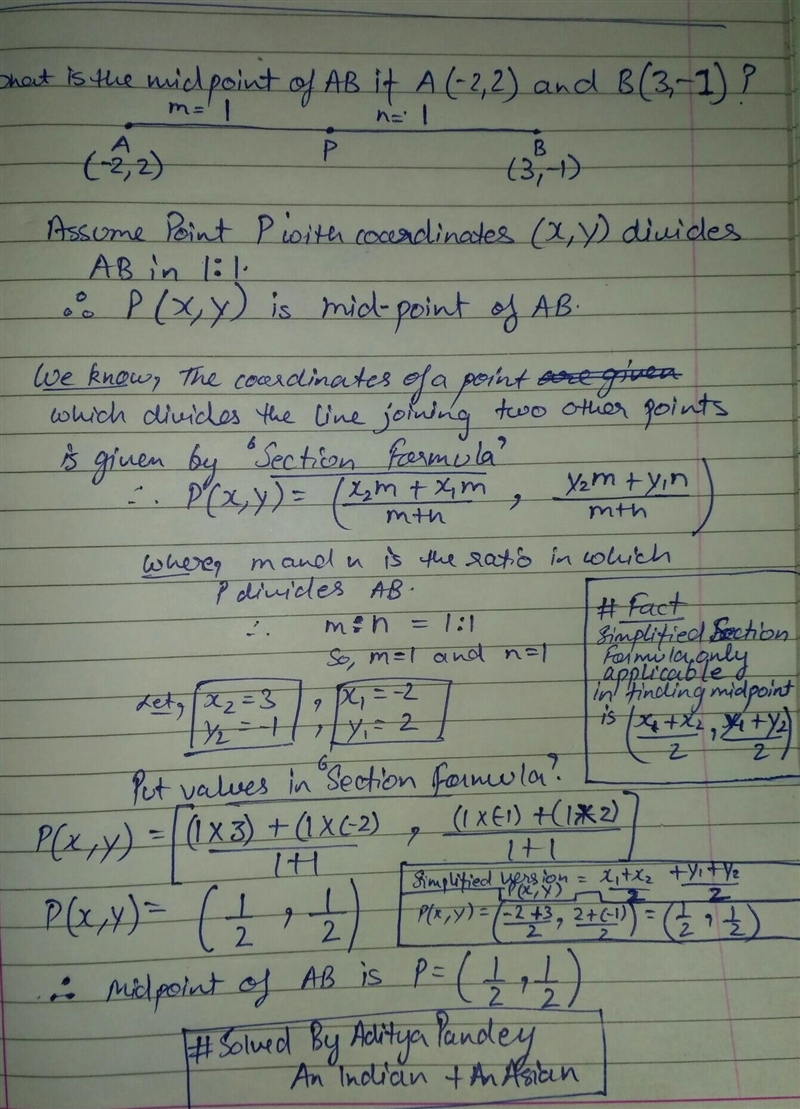 What is the midpoint of AB if A(-2,2) and B(3,-1)?
m= 1 n= 1
A P B
(-2,2) (3,-1)
Assume Point P with coordinates (x,y) divides
AB in 1:1.
∴ P(x,y) is mid-point of AB.
We know, The coordinates of a point are given
which divides the line joining two other points
is given by 'Section Formula'
∴ P(x,y) = (x₂m + x₁m / m+n , y₂m + y₁n / m+n)
where, m and n is the ratio in which
P divides AB.
∴ m:n = 1:1
So, m=1 and n=1
Let, x₂ = 3 , x₁ = -2
y₂ = -1 , y₁ = 2
# Fact
Simplified Section
Formula only
applicable
in finding midpoint
is (x₁+x₂ / 2 , y₁+y₂ / 2)
Put values in 'Section Formula'.
P(x,y) = [(1×3) + (1×(-2) / 1+1 , (1×(-1) + (1×2) / 1+1]
Simplified version = x₁+x₂ / 2 + y₁+y₂ / 2
P(x,y)
P(x,y) = (-2+3 / 2 , 2+(-1) / 2) = (1/2 , 1/2)
P(x,y) = (1/2 , 1/2)
∴ Midpoint of AB is P = (1/2 , 1/2)
# Solved By Aditya Pandey
An Indian + An Asian